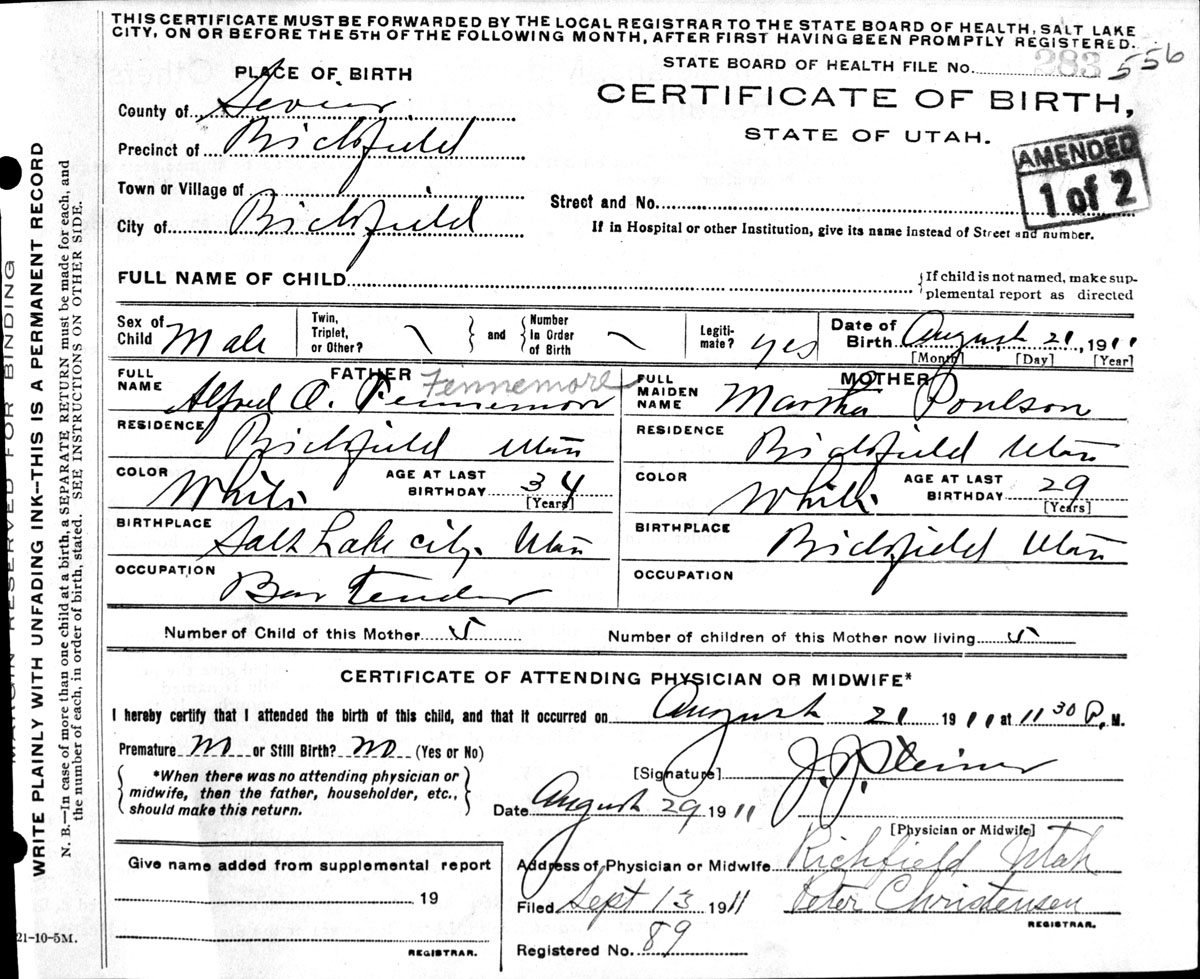 THIS CERTIFICATE MUST BE FORWARDED BY THE LOCAL REGISTRAR TO THE STATE BOARD OF HEALTH, SALT LAKE
CITY, ON OR BEFORE THE 5TH OF THE FOLLOWING MONTH, AFTER FIRST HAVING BEEN PROMPTLY REGISTERED.
PLACE OF BIRTH
STATE BOARD OF HEALTH FILE No. 283 556
CERTIFICATE OF BIRTH,
STATE OF UTAH.
AMENDED
1 of 2
County of Sevier
Precinct of Richfield
Town or Village of
City of Richfield
Street and No.
If in Hospital or other Institution, give its name instead of Street and number.
FULL NAME OF CHILD
If child is not named, make sup-
plemental report as directed
Sex of Child Male
Twin, Triplet, or Other?
and
Number In Order of Birth
Legiti-mate? yes
Date of Birth August 21, 1911
[Month] [Day] [Year]
FATHER
FULL NAME Alfred O. Fennemore Fennemore
RESIDENCE Richfield Utah
COLOR White
AGE AT LAST BIRTHDAY 34
[Years]
BIRTHPLACE Salt Lake City Utah
OCCUPATION Bar Tender
MOTHER
FULL MAIDEN NAME Martha Poulson
RESIDENCE Richfield Utah
COLOR White
AGE AT LAST BIRTHDAY 29
[Years]
BIRTHPLACE Richfield Utah
OCCUPATION
Number of Child of this Mother 5
Number of children of this Mother now living 5
CERTIFICATE OF ATTENDING PHYSICIAN OR MIDWIFE*
I hereby certify that I attended the birth of this child, and that it occurred on August 21 1911 at 11 30 P. M.
Premature No or Still Birth? No (Yes or No)
*When there was no attending physician or
midwife, then the father, householder, etc.,
should make this return.
[Signature] J. J. Steiner
Date August 29 1911
[Physician or Midwife]
Give name added from supplemental report
19
REGISTRAR.
Address of Physician or Midwife Richfield Utah
Filed Sept 13 1911 Peter Christensen
REGISTRAR.
Registered No. 89
21-10-5M.
MARGIN RESERVED FOR BINDING
WRITE PLAINLY WITH UNFADING INK—THIS IS A PERMANENT RECORD
N. B.—In case of more than one child at a birth, a SEPARATE RETURN must be made for each, and
the number of each, in order of birth, stated. SEE INSTRUCTIONS ON OTHER SIDE.